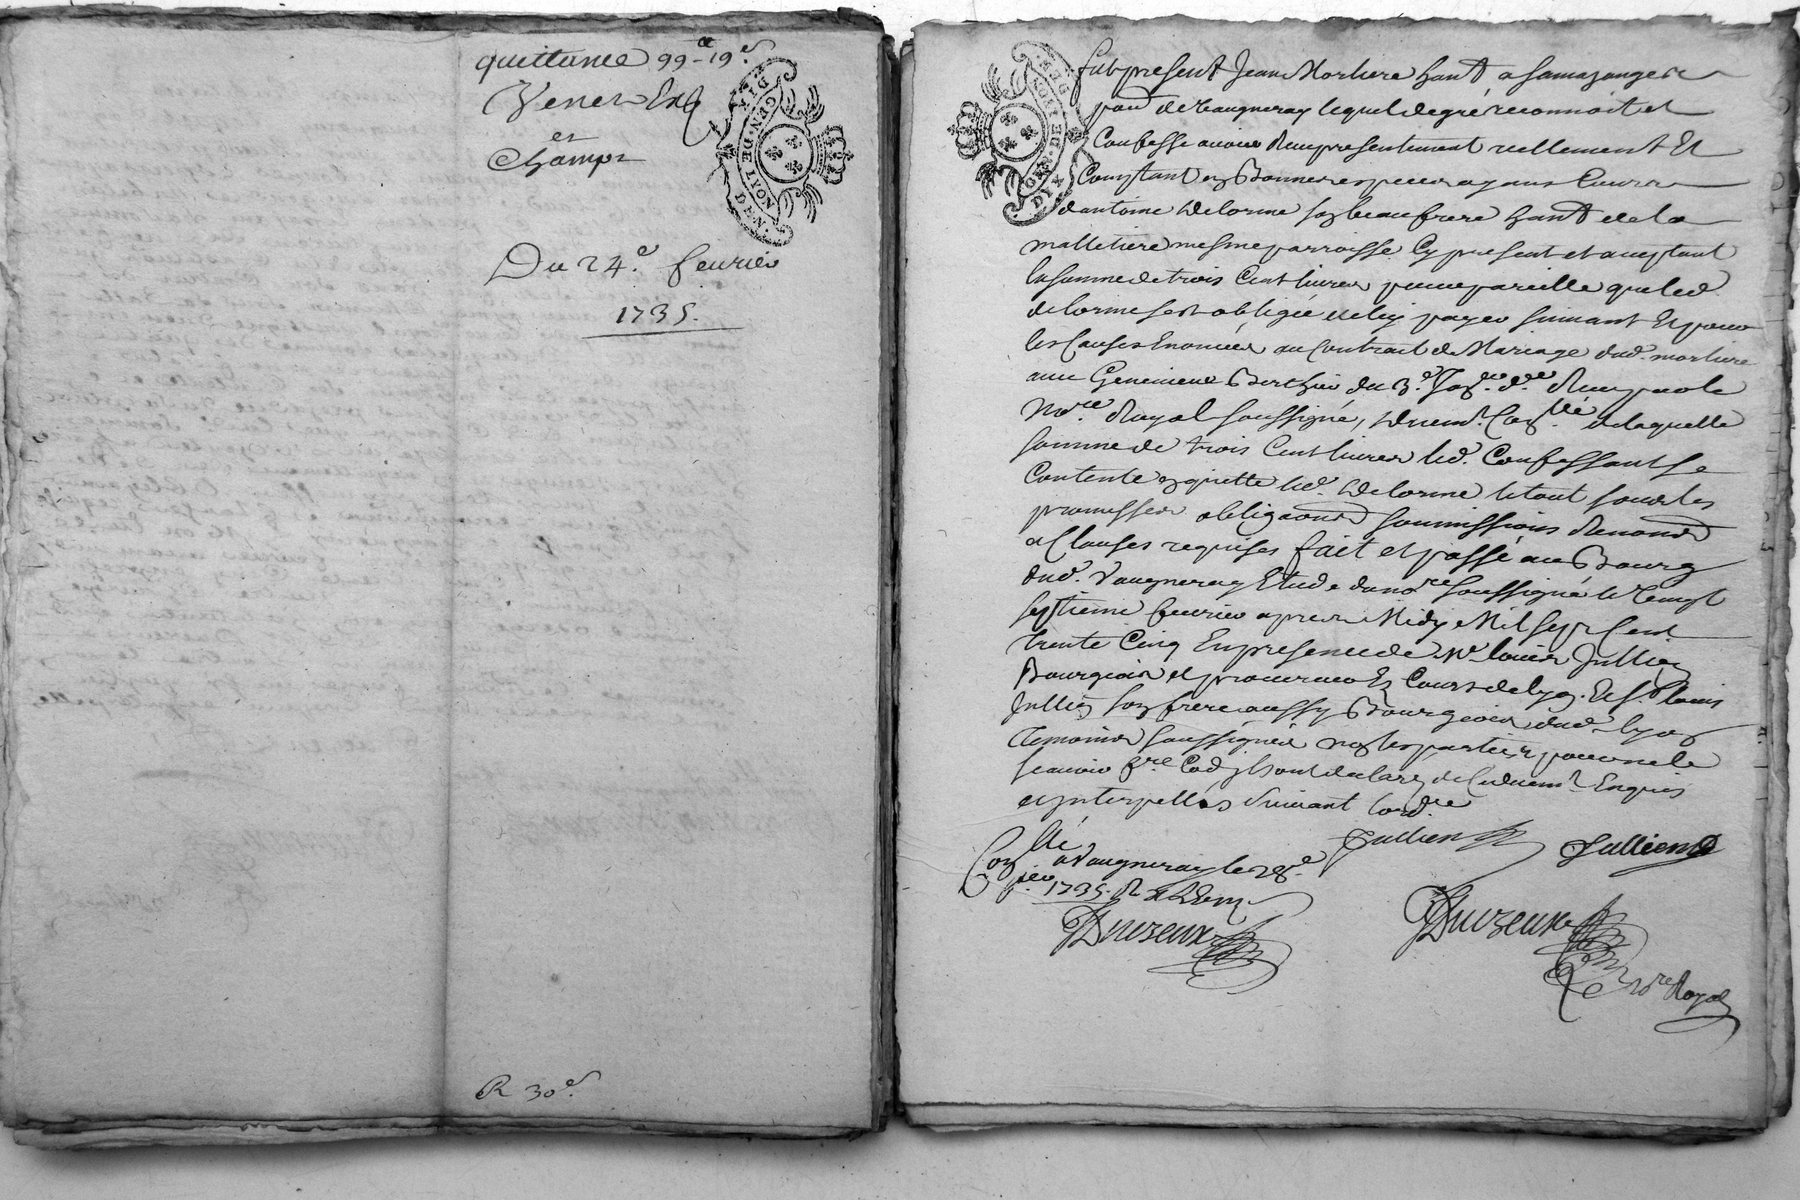 quittance 99ᵗᵗ - 19ˢ
Venet
et
Champt
GEN. DE LYON
DIX DEN.
Du 24.ᵉ feurier
1735.
R 30ˢ.
GEN. DE LYON
DIX DEN.
fut present Jean Morliere hant a
par de Vaugneray lequel de gré reconnoit et
Confesse auoir Receu presentement reellement Et
Comptant en Bonnes especes ayans Cours
dantoine Delorme son beaufrere hant de la
malletiere mesme parroisse Cy present et aceptant
la somme de trois Cent liures pour pareille que led.
delorme sest obligée de luy payer suiuant Et pour
les Causes Enoncées au Contrait de Mariage dud. morliere
auec Geneuieue Berthier du 3.ᵉ Receu par le
Noʳᵉ Royal soussigné, Duem.ᵗ Con.ˡˡé de laquelle
somme de trois Cent liures led. Confessant se
Contente en quitte led. Delorme le tout sous les
promesses obligaons soumissions Renonons
et Clauses requises fait et passé au Bourg
dud. Vaugneray Etude du noʳᵉ soussigné le vingt
septieme feurier apres Midy Mil sept Cent
trente Cinq En presence de Mᵉ louis Jullien
Bourgeois et procureur Es Cours de lyon. Et Sʳ louis
Jullien son frere aussy Bourgeois dud. lyon
Temoins soussignés non les parties pour ne le
scauoir fʳᵉ Enquis
et interpellés suiuant lord.ᶜᵉ
Jullien Jullien
Conˡˡé a Vaugneray le 28.ᵉ
feu. 1735. R
Duvzeux Duvzeux
noʳᵉ Royal